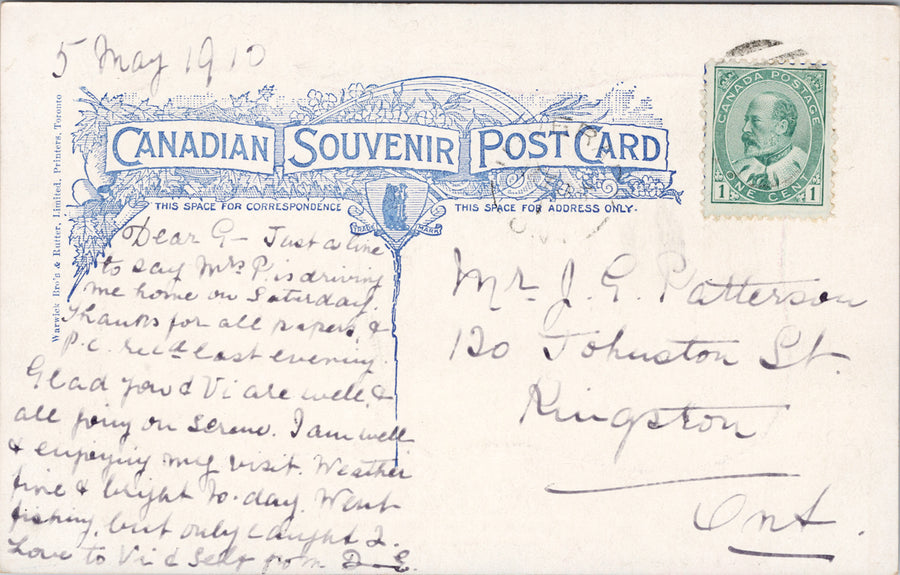 5 May 1910
CANADIAN SOUVENIR POST CARD
THIS SPACE FOR CORRESPONDENCE
THIS SPACE FOR ADDRESS ONLY.
TRADE MARK
Warwick Bro's & Rutter, Limited, Printers, Toronto
CANADA POSTAGE
1 ONE CENT 1
Dear G— Just a line
to say Mrs P. is driving
me home on Saturday.
Thanks for all papers, &
P.C. rec'd last evening.
Glad you & Vi are well, &
all going on serene. I am well
& enjoying my visit. Weather
fine & bright to-day. Went
fishing, but only caught 2.
Love to Vi & Self from D—E.
Mr. J. G. Patterson
120 Johnston St.
Kingston
Ont.